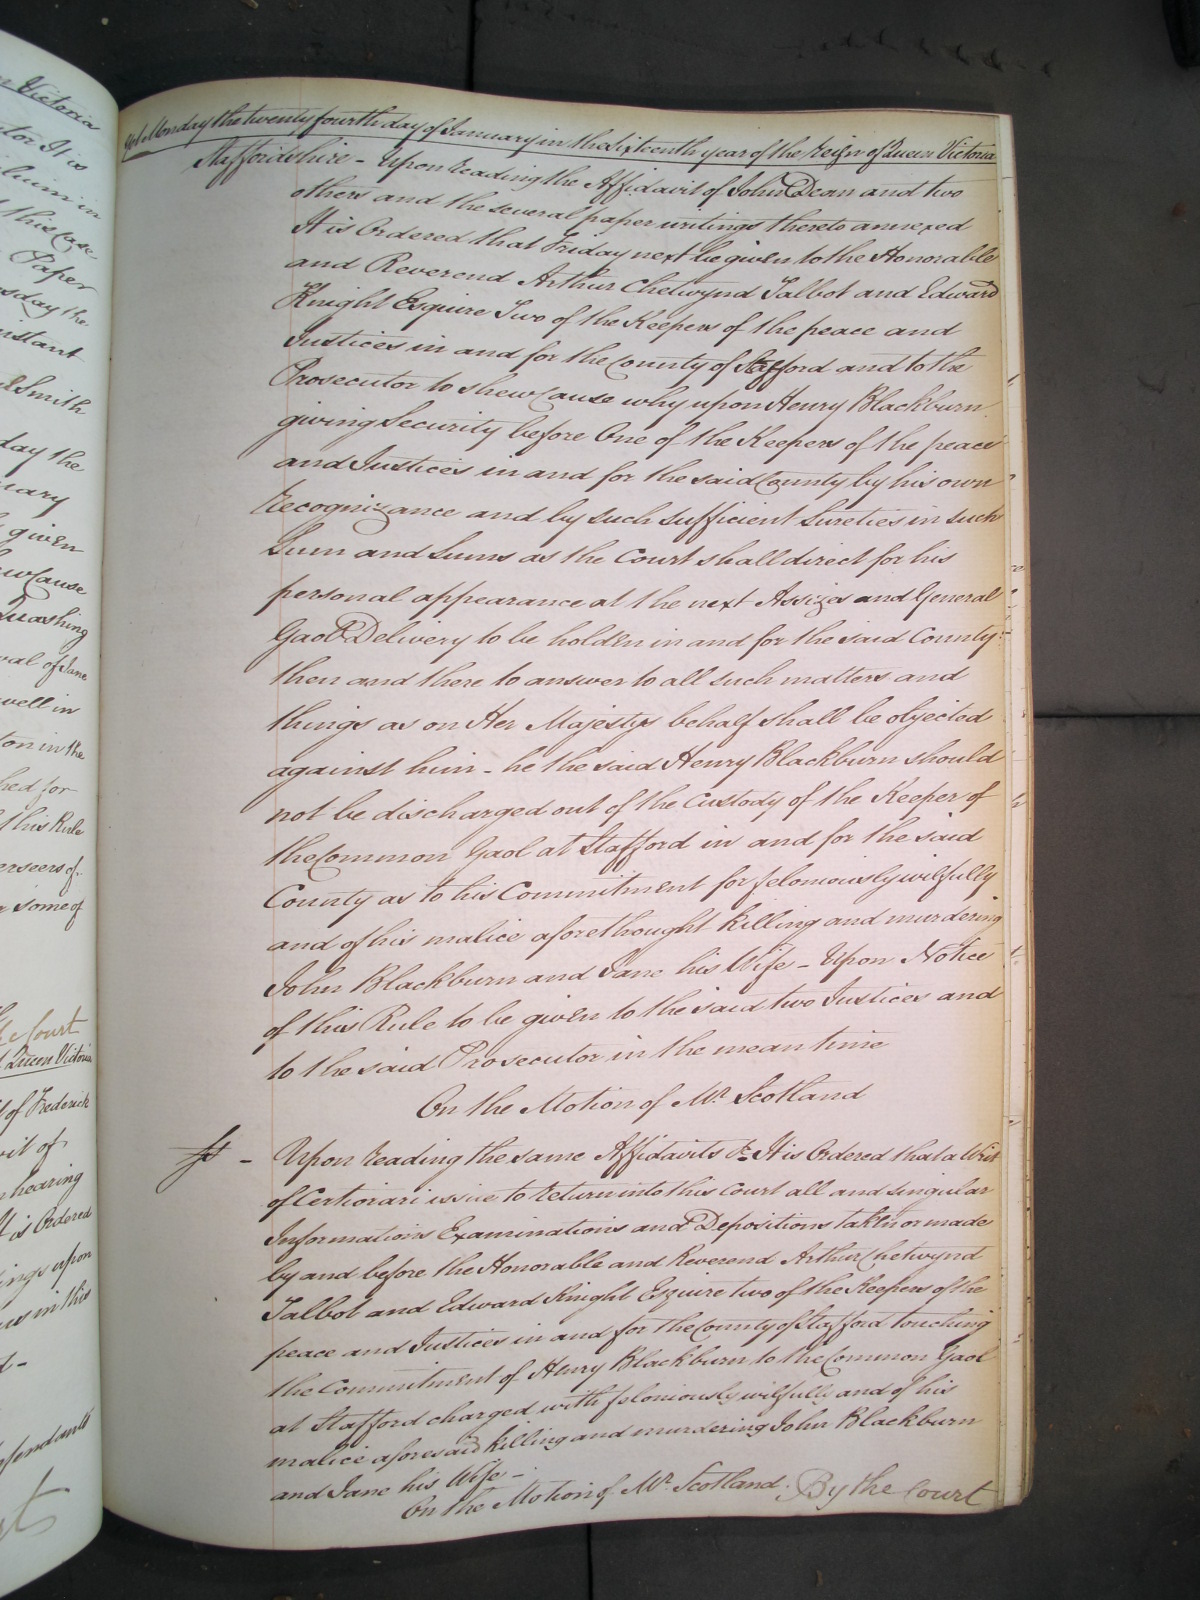 Victoria
tor It is
this case
Paper
sday the
instant
Smith
day the
uary
given
Cause
Quashing
val of Jane
well in
ton in the
hed for
this Rule
erseers of
some of
Court
Queen Victoria
of Frederick
vit of
hearing
It is Ordered
ings upon
in this
Yet Monday the twenty fourth day of January in the Sixteenth year of the Reign of Queen Victoria
Staffordshire - Upon reading the Affidavit of John Dean and two
others and the several paper writings thereto annexed
It is Ordered that Friday next be given to the Honorable
and Reverend Arthur Chetwynd Talbot and Edward
Knight Esquire Two of the Keepers of the peace and
Justices in and for the County of Stafford and to the
Prosecutor to shew Cause why upon Henry Blackburn
giving Security before One of the Keepers of the peace
and Justices in and for the said County by his own
Recognizance and by such sufficient Sureties in such
Sum and Sums as the Court shall direct for his
personal appearance at the next Assizes and General
Gaol Delivery to be holden in and for the said County
then and there to answer to all such matters and
things as on Her Majestys behalf shall be objected
against him - he the said Henry Blackburn should
not be discharged out of the Custody of the Keeper of
the Common Gaol at Stafford in and for the said
County as to his Commitment for feloniously wilfully
and of his malice aforethought killing and murdering
John Blackburn and Jane his Wife - Upon Notice
of this Rule to be given to the said two Justices and
to the said Prosecutor in the mean time
On the Motion of Mr. Scotland
Upon reading the same Affidavits &c It is Ordered that a Writ
of Certiorari issue to return into this Court all and singular
Informations Examinations and Depositions taken or made
by and before the Honorable and Reverend Arthur Chetwynd
Talbot and Edward Knight Esquire two of the Keepers of the
peace and Justices in and for the County of Stafford touching
the Commitment of Henry Blackburn to the Common Gaol
at Stafford charged with feloniously wilfully and of his
malice aforesaid killing and murdering John Blackburn
and Jane his Wife -
On the Motion of Mr. Scotland. By the Court